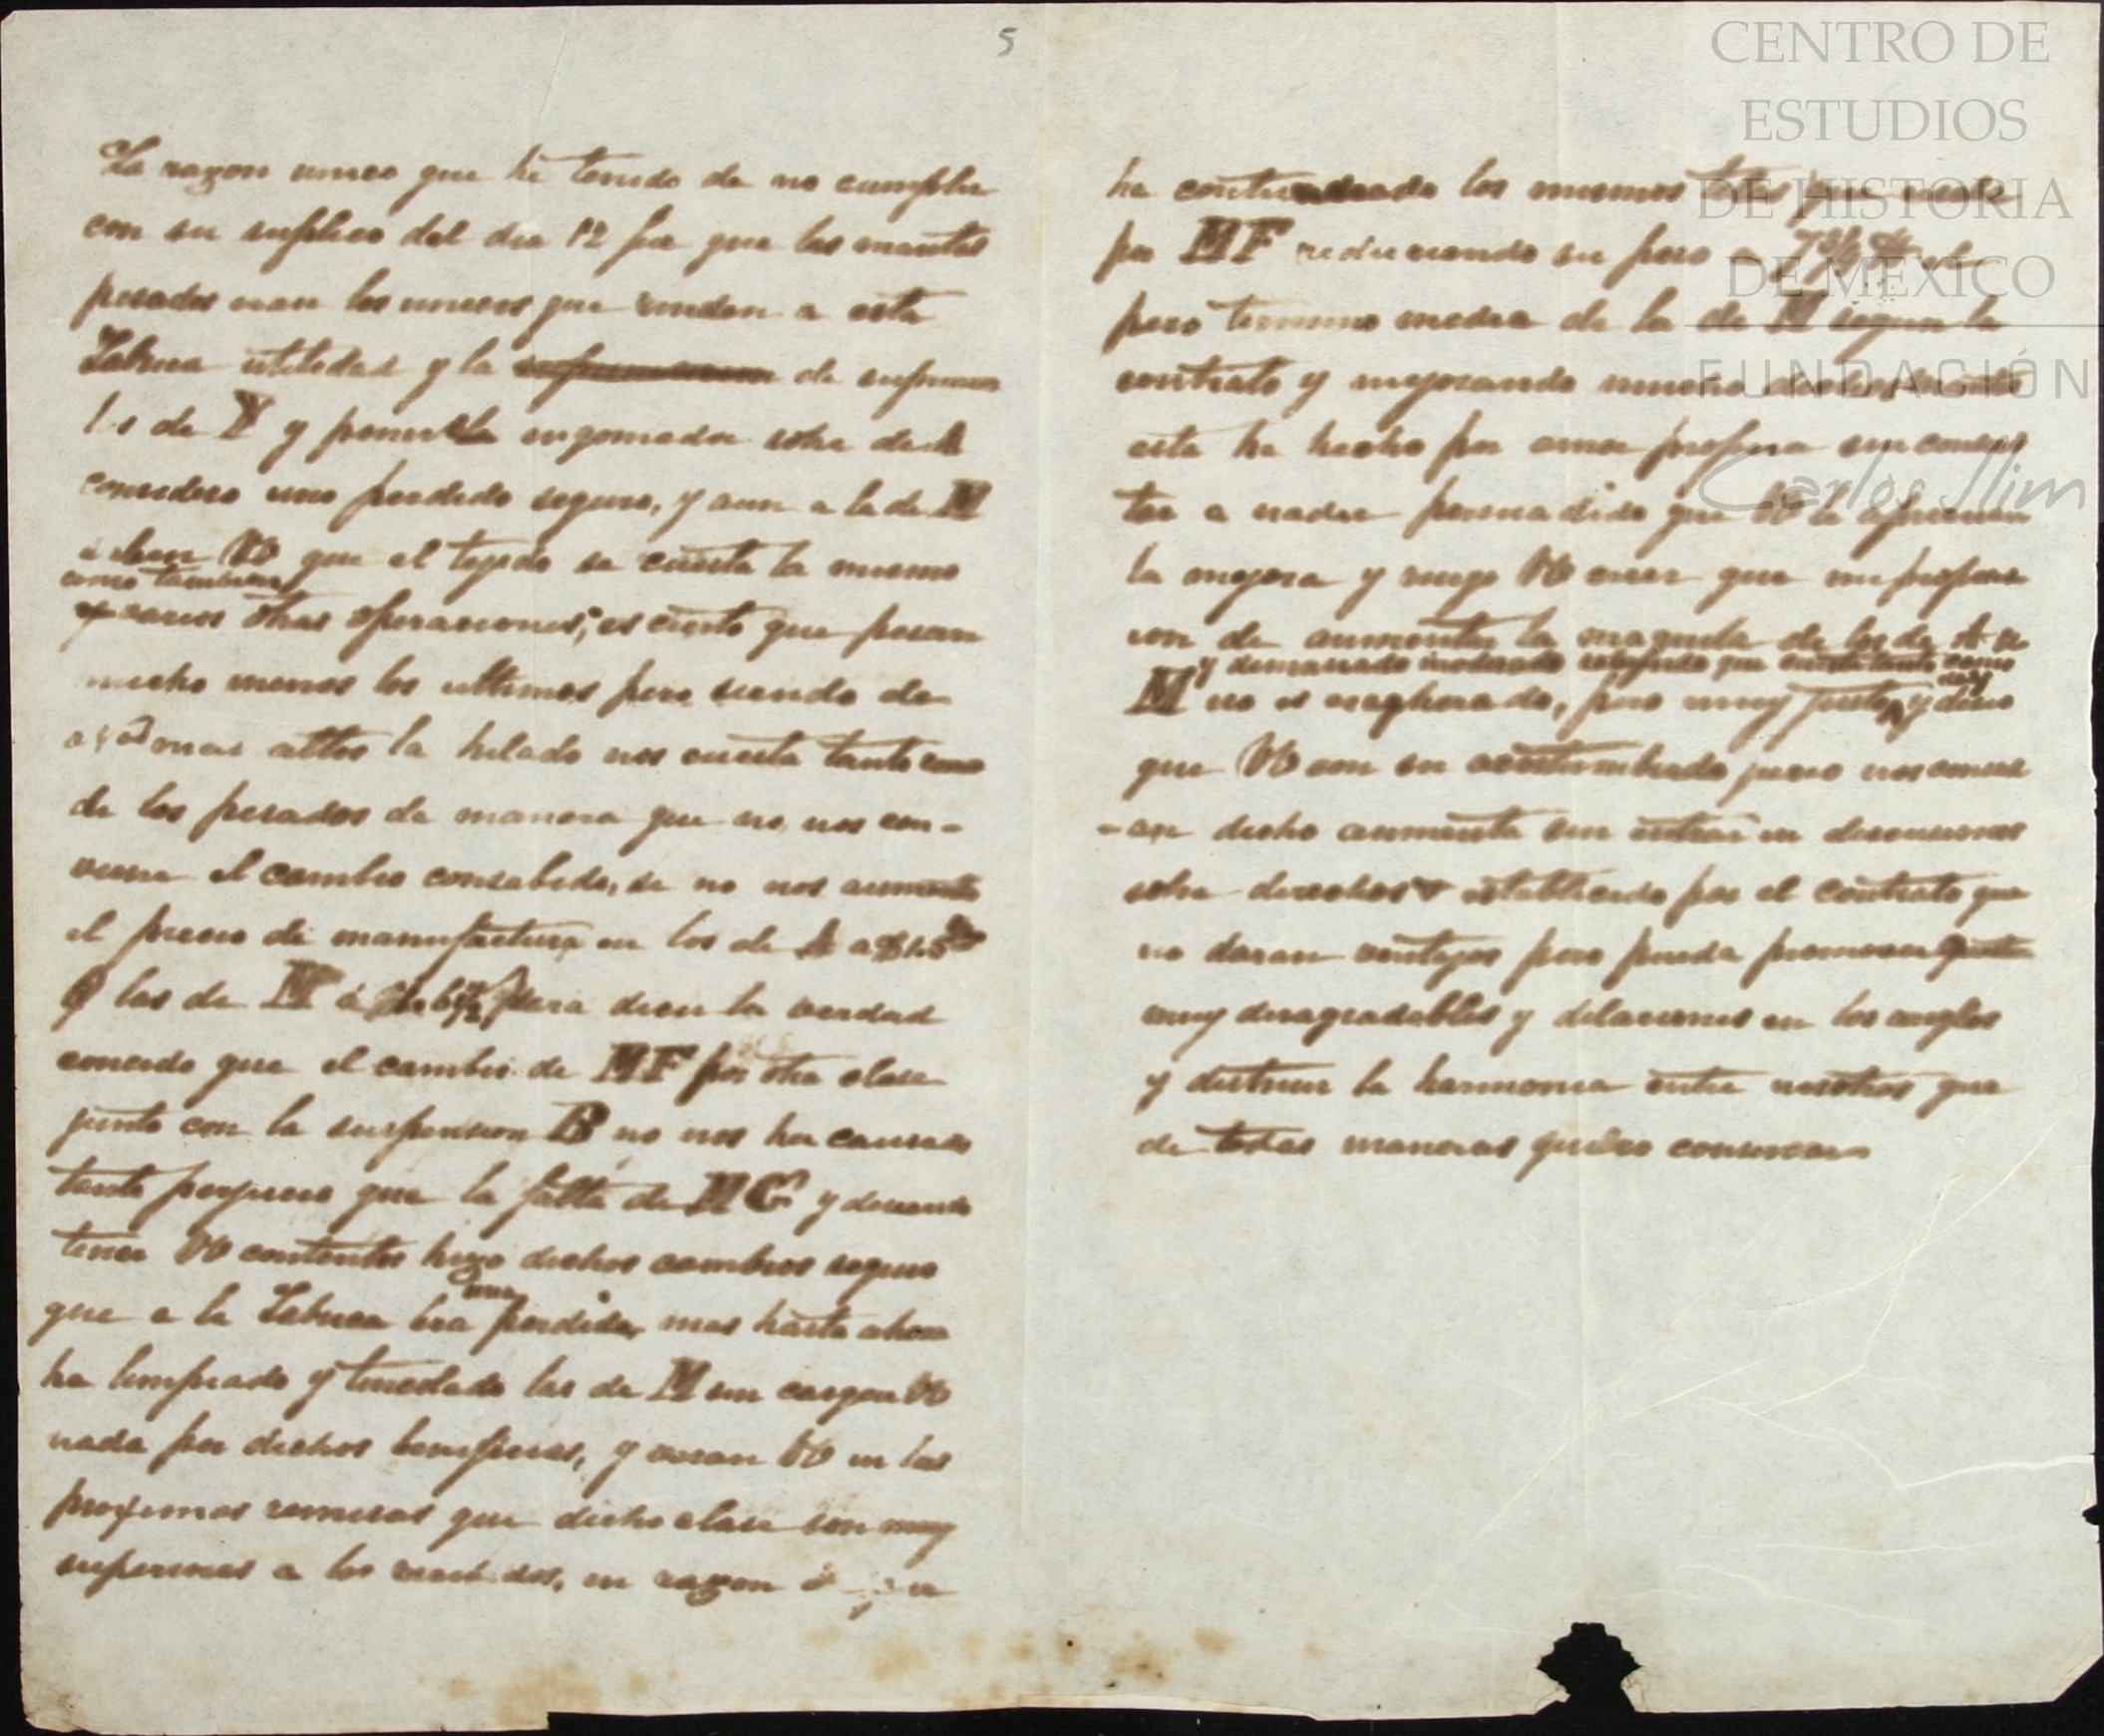 5
La razon unica que he tenido de no cumplir
con su suplica del dia 12 fue que las mantas
pesados eran los unicos que rinden a esta
Fabrica utilidad y la de suprimir
los de Y y poner la engomador sobre de A
considero una perdida seguro, y aun a la de M
saben VV que el tejido se cuesta lo mismo
como tambien
varios otras operaciones, es cierto que pesan
mucho menos los ultimos pero siendo de
mas altos la hilado nos cuesta tanto como
de los pesados de manera que no nos con-
viene el cambio consabido, si no nos aumenta
el precio de manufactura en los de A a $1.5
y las de M á para decir la verdad
concedo que el cambio de MF por otra clase
junto con la suspension B no nos ha causado
tanto perjuicio que la falta de MG y deseando
tener VV contentos hizo dichos cambios seguro
que a la Fabrica era una perdida, mas hasta ahora
ha limpiado y las de M sin cargar VV
nada por dichos beneficios, y veran VV en las
proximas remesas que dicho clase son muy
superiores a los recibidos, en razon
ha los mismos que
por MF reduciendo su peso a 7
peso termino media de la de M segun la
contrato y mejorando mucho
esta he hecho por amor propio sin consul
tar a nadie persuadido que VV
la mejora y ruego VV creer que mi proposi
cion de aumentar la maquila de los de A
y demasiado
M no es exagherado, pero muy justo, y
que VV con su acostumbrado juicio nos
an dicho aumento sin entrar en discusiones
sobre derechos establicido por el contrato que
no daran ventajas pero pueda promover
muy desagradables y dilaciones en los arreglos
y destruir la harmonia entre nosotros que
de todas maneras quiero conservar
CENTRO DE
ESTUDIOS
DE HISTORIA
DE MÉXICO
FUNDACIÓN
Carlos Slim